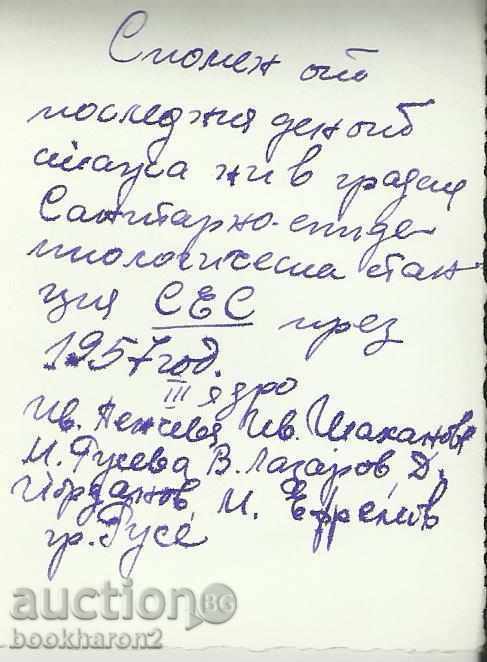 Спомен от
последния ден от
стажа ни в градска
Санитарно-епиде
миологическа стан
ция СЕС през
1957 год.
III ядро
Ив. Пенчева, Ив. Шаханова
М. Гусева, В. Лазаров, Д.
Йорданов, И. Ефремов
гр. Русе
auction BG
bookharon2